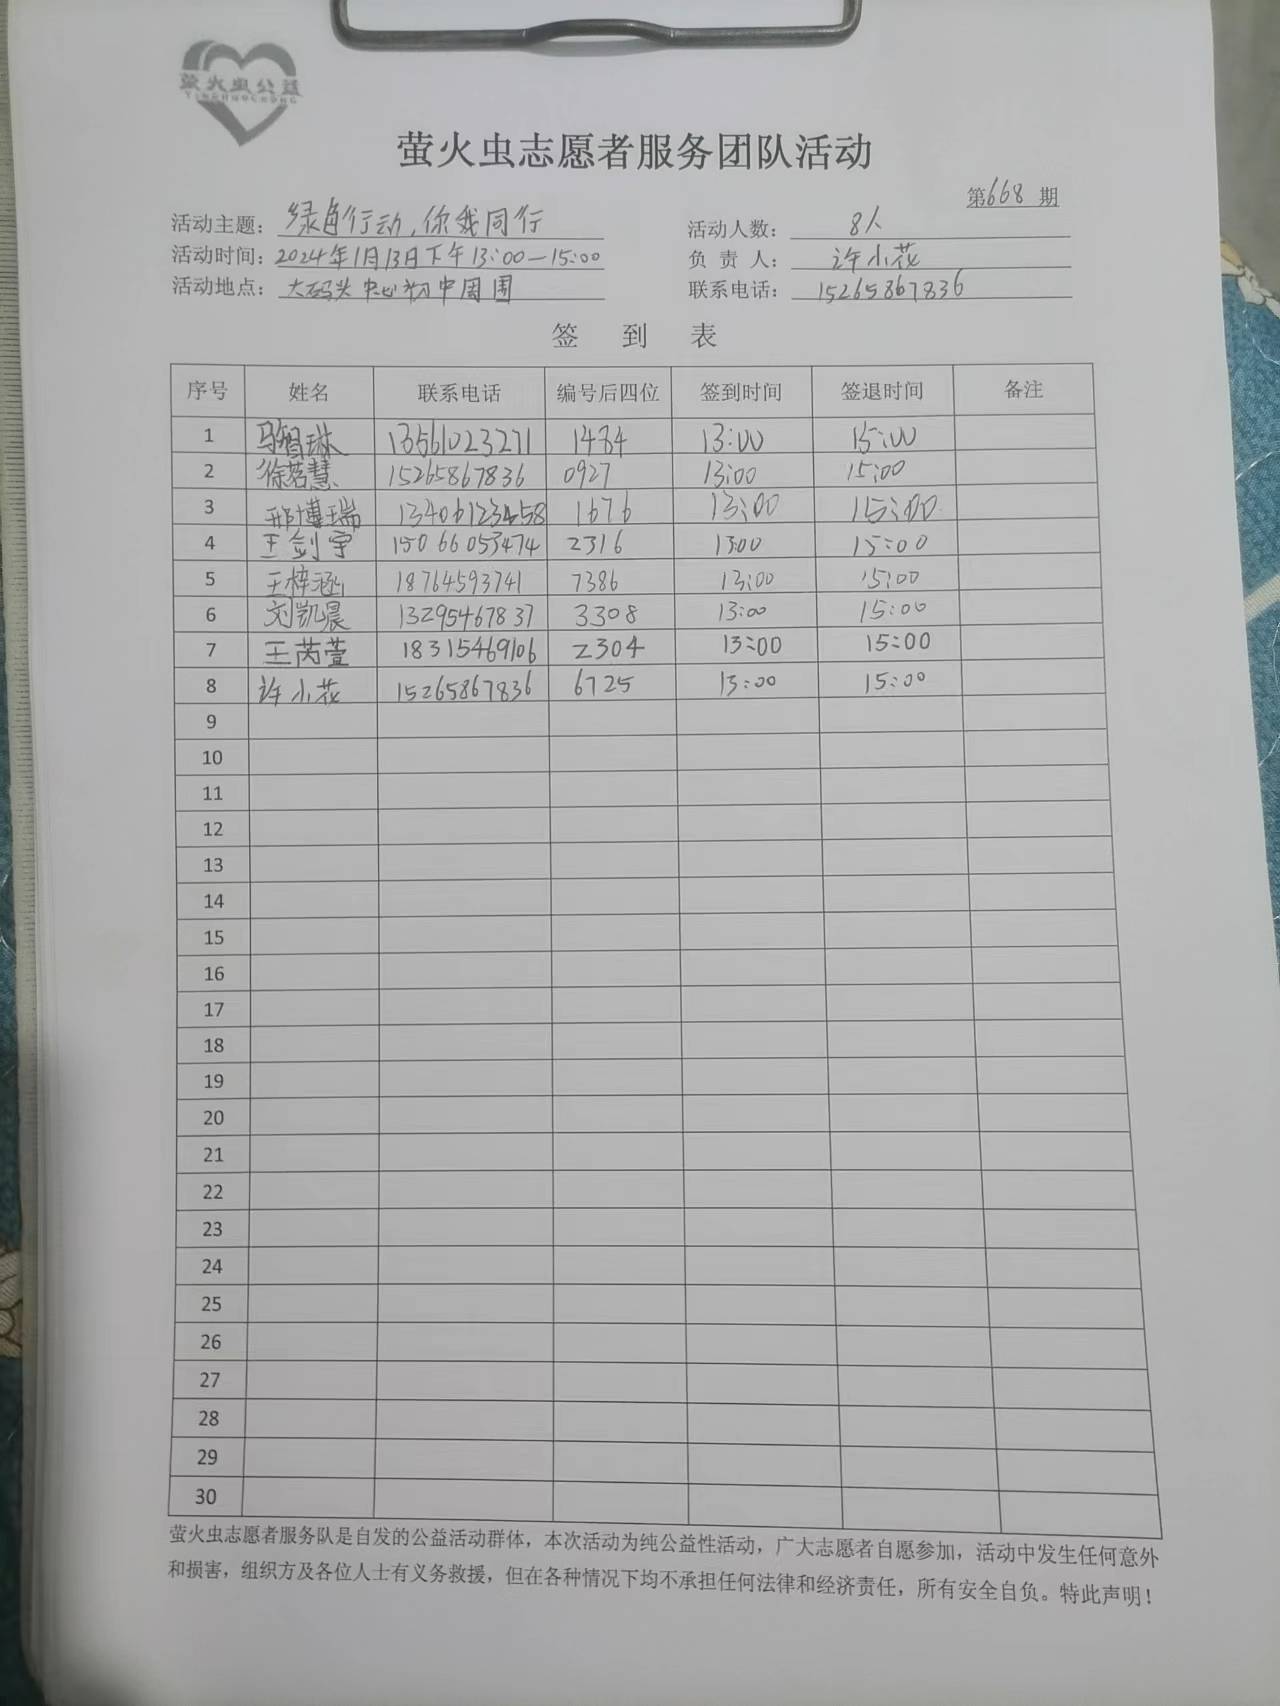 萤火虫公益
YINGHUOCHONG
萤火虫志愿者服务团队活动
第668期
活动主题：绿色行动，你我同行 活动人数：8人
活动时间：2024年1月13日下午13:00—15:00 负责人：许小花
活动地点：大码头中心初中周围 联系电话：15265867836
签到表
序号 姓名 联系电话 编号后四位 签到时间 签退时间 备注
1 马智琳 13561023271 1484 13:00 15:00
2 徐若慧 15265867836 0927 13:00 15:00
3 邢博瑞 13406123458 1676 13:00 15:00
4 王剑宇 15066053474 2316 13:00 15:00
5 王梓涵 18764593741 7386 13:00 15:00
6 刘凯晨 13295467837 3308 13:00 15:00
7 王芮萱 18315469106 2304 13:00 15:00
8 许小花 15265867836 6725 13:00 15:00
9
10
11
12
13
14
15
16
17
18
19
20
21
22
23
24
25
26
27
28
29
30
萤火虫志愿者服务队是自发的公益活动群体，本次活动为纯公益性活动，广大志愿者自愿参加，活动中发生任何意外
和损害，组织方及各位人士有义务救援，但在各种情况下均不承担任何法律和经济责任，所有安全自负。特此声明！